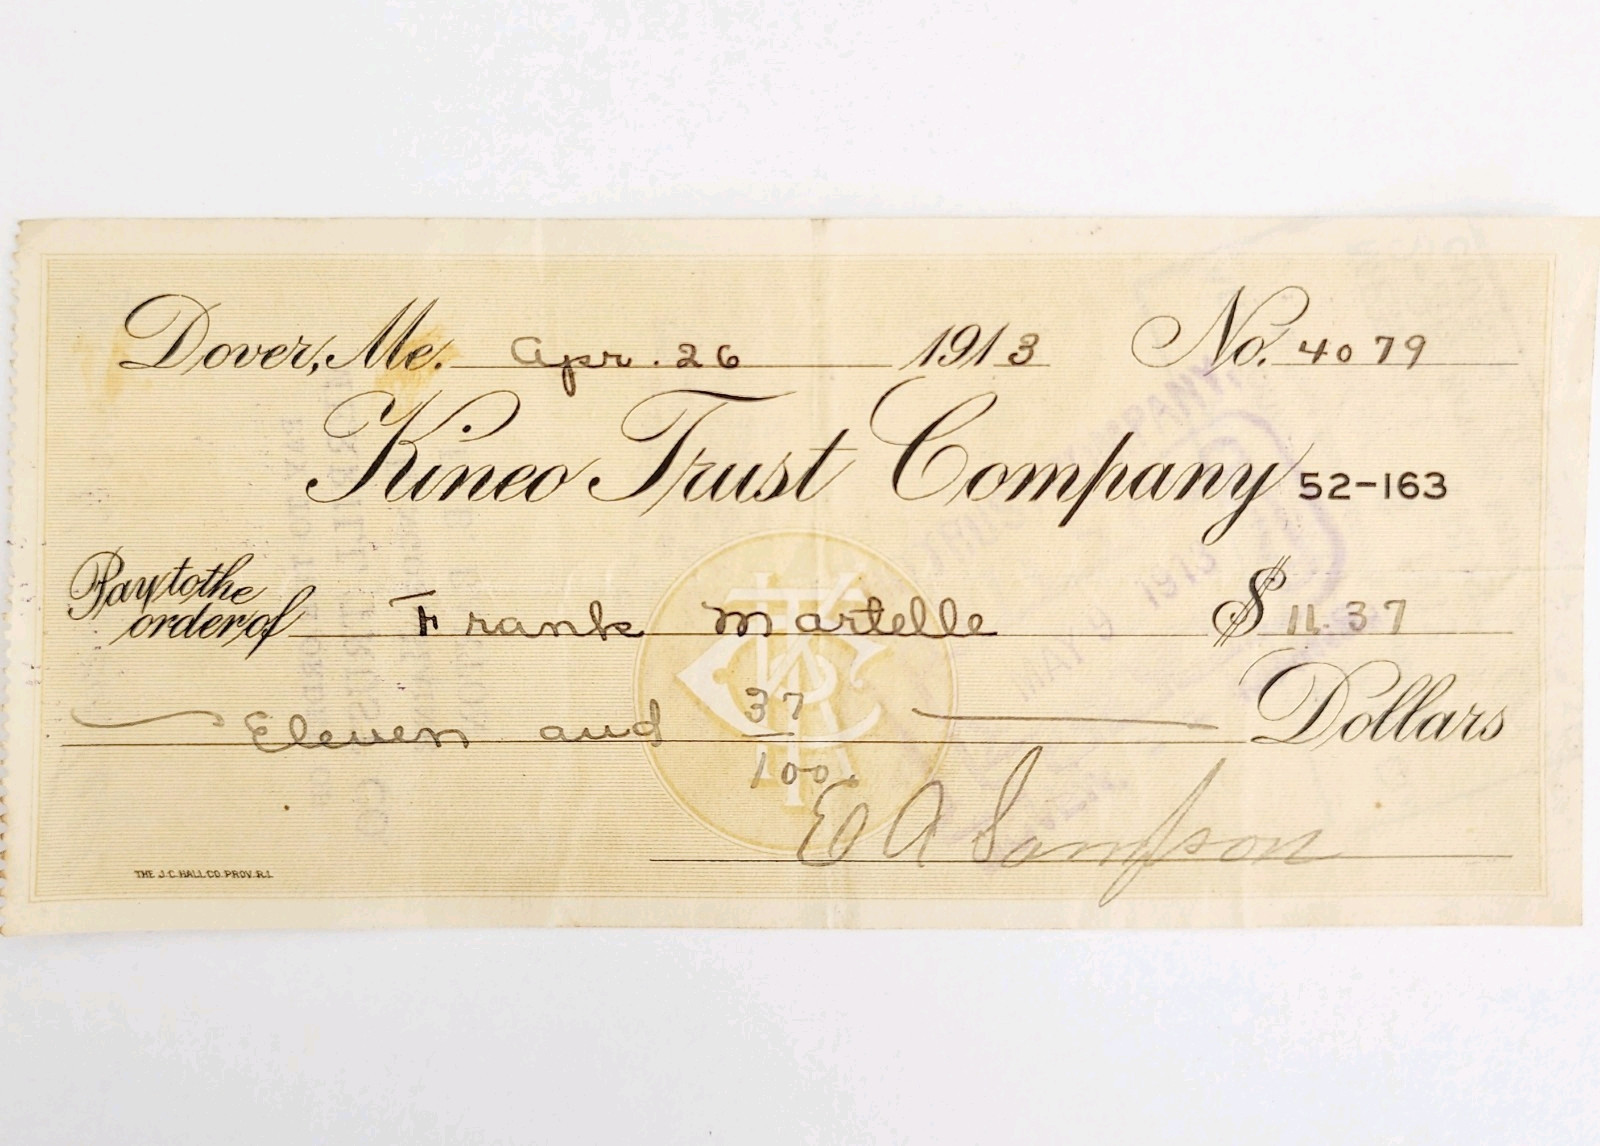 Dover, Me. Apr. 26 1913 No. 4079
Kineo Trust Company 52-163
Pay to the
order of Frank Martelle $ 11.37
Eleven and 37/100 Dollars
E A Sampson
THE J.C. HALL CO. PROV. R.I.
MAY 9 1913